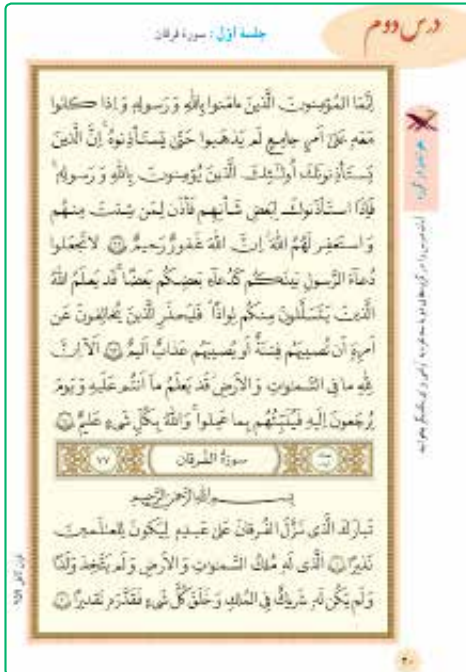 درس دوم
جلسهٔ اوّل : سورهٔ فرقان
اِنَّمَا المُؤمِنونَ الَّذينَ ءامَنوا بِاللهِ وَ رَسولِهٖ وَ اِذا كانوا
مَعَهٗ عَلىٰ اَمرٍ جامِعٍ لَم يَذهَبوا حَتّىٰ يَستَأذِنوهُ اِنَّ الَّذينَ
يَستَأذِنونَكَ اُولٰئِكَ الَّذينَ يُؤمِنونَ بِاللهِ وَ رَسولِهٖ
فَاِذَا استَأذَنوكَ لِبَعضِ شَأنِهِم فَأذَن لِمَن شِئتَ مِنهُم
وَ استَغفِر لَهُمُ اللهَ اِنَّ اللهَ غَفورٌ رَحيمٌ ﴿٦٢﴾ لا تَجعَلوا
دُعاءَ الرَّسولِ بَينَكُم كَدُعاءِ بَعضِكُم بَعضًا قَد يَعلَمُ اللهُ
الَّذينَ يَتَسَلَّلونَ مِنكُم لِواذًا فَليَحذَرِ الَّذينَ يُخالِفونَ عَن
اَمرِهٖ اَن تُصيبَهُم فِتنَةٌ اَو يُصيبَهُم عَذابٌ اَليمٌ ﴿٦٣﴾ اَلا اِنَّ
لِلّٰهِ ما فِي السَّمٰوٰتِ وَ الاَرضِ قَد يَعلَمُ ما اَنتُم عَلَيهِ وَ يَومَ
يُرجَعونَ اِلَيهِ فَيُنَبِّئُهُم بِما عَمِلوا وَ اللهُ بِكُلِّ شَيءٍ عَليمٌ ﴿٦٤﴾
سورَةُ الفُرقان
٧٧
بِسمِ اللهِ الرَّحمٰنِ الرَّحيمِ
تَبارَكَ الَّذي نَزَّلَ الفُرقانَ عَلىٰ عَبدِهٖ لِيَكونَ لِلعٰلَمينَ
نَذيرًا ﴿١﴾ اَلَّذي لَهٗ مُلكُ السَّمٰوٰتِ وَ الاَرضِ وَ لَم يَتَّخِذ وَلَدًا
وَ لَم يَكُن لَهٗ شَريكٌ فِي المُلكِ وَ خَلَقَ كُلَّ شَيءٍ فَقَدَّرَهٗ تَقديرًا ﴿٢﴾
٢٠